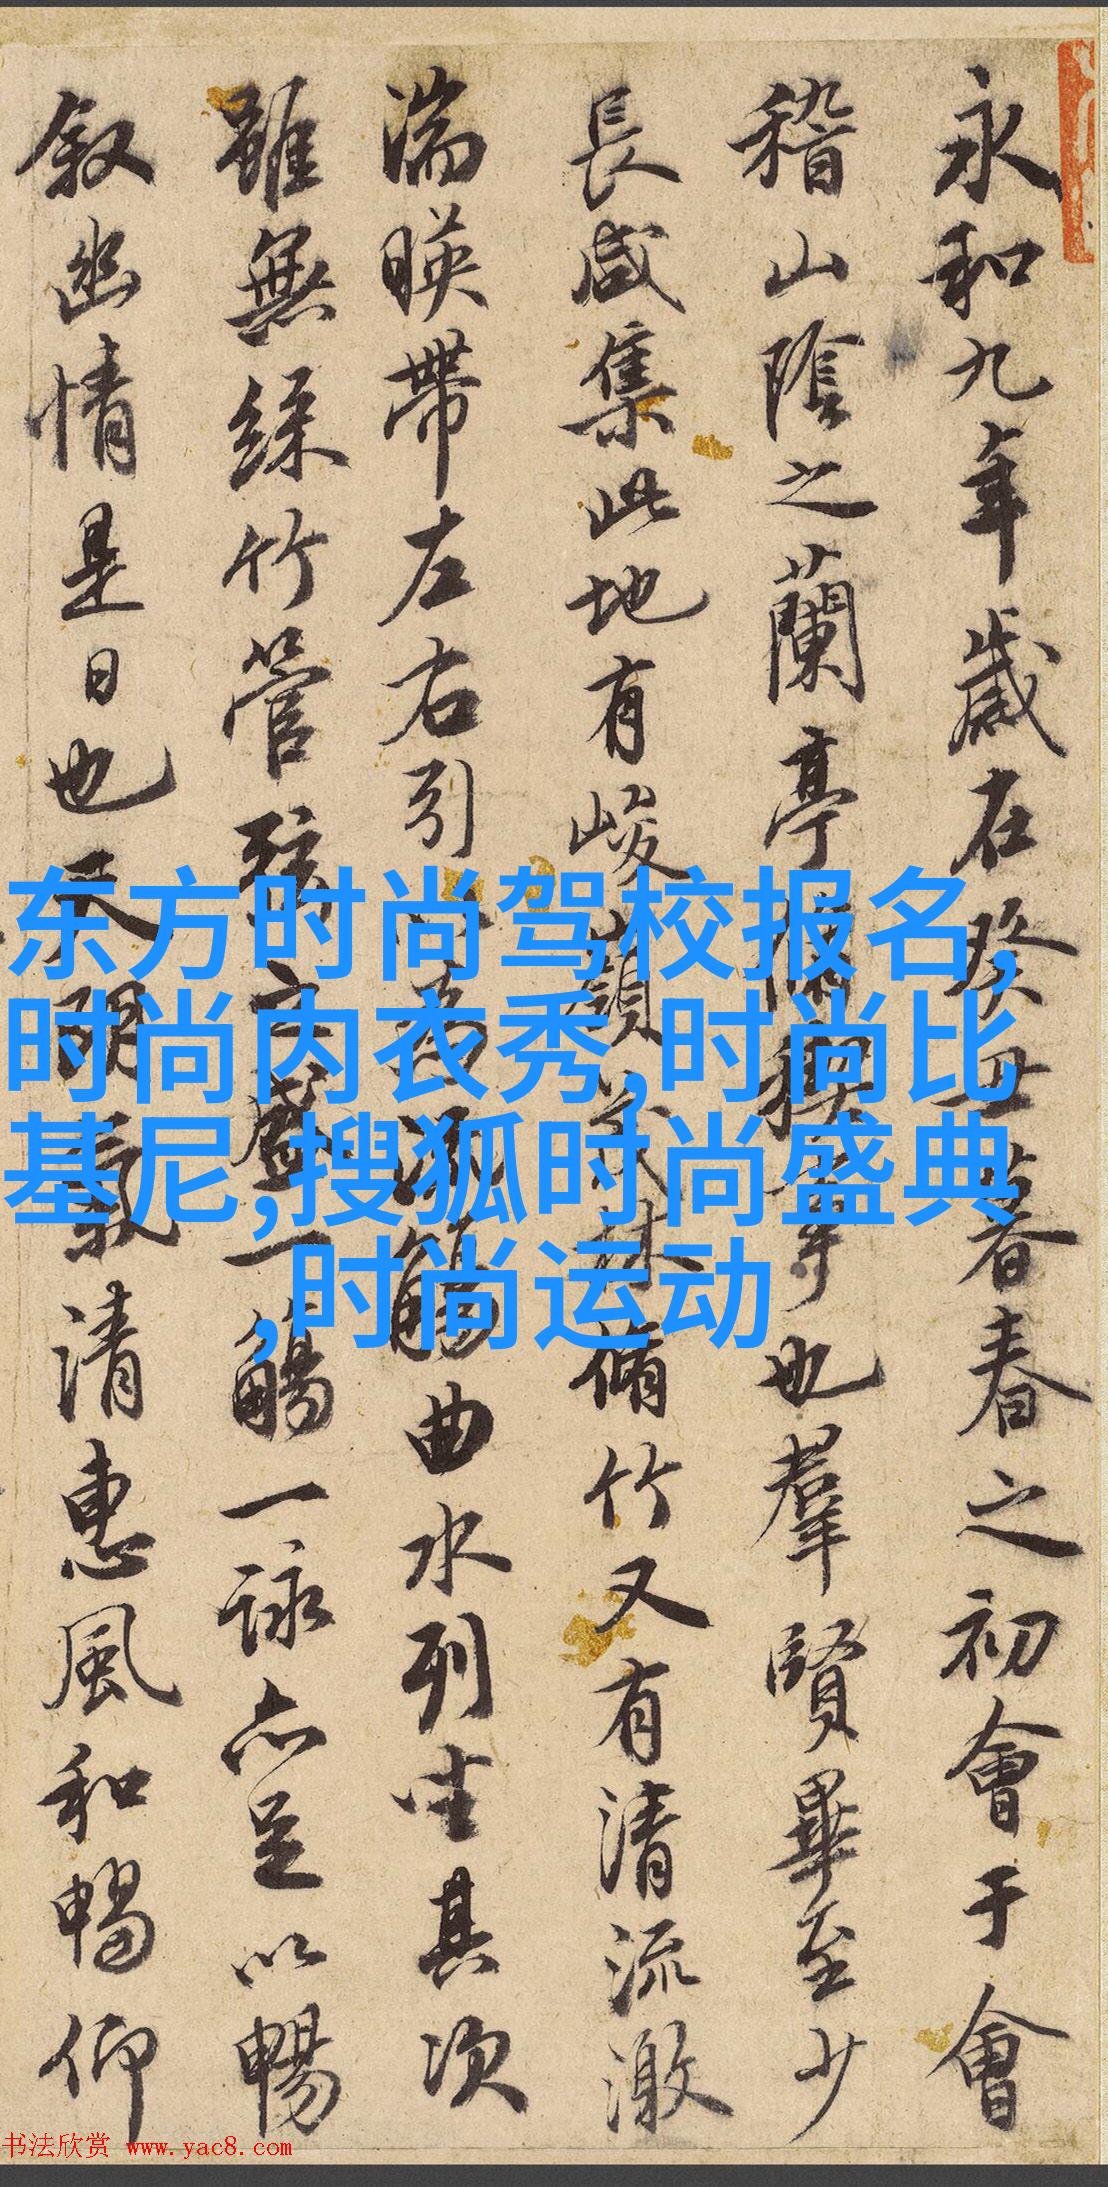 永和九年歲在癸丑暮春之初會于會
稽山陰之蘭亭脩稧事也羣賢畢至少
長咸集此地有峻嶺茂林脩竹又有清流激
湍暎帶左右引以為流觴曲水列坐其次
雖無絲竹管弦之盛一觴一詠亦足以暢
叙幽情是日也天朗氣清惠風和暢仰
东方时尚驾校报名,
时尚内衣秀,时尚比
基尼,搜狐时尚盛典
,时尚运动
书法欣赏 www.yac8.com